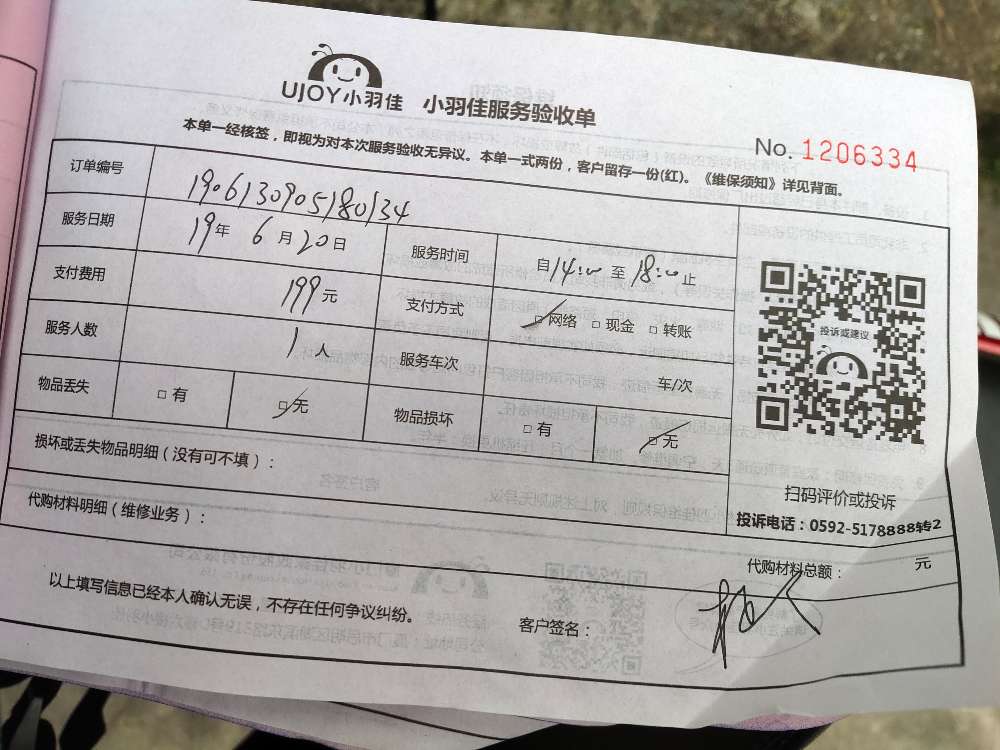 UJOY小羽佳 小羽佳服务验收单
No. 1206334
本单一经核签，即视为对本次服务验收无异议。本单一式两份，客户留存一份(红)。《维保须知》详见背面。
订单编号 190613090518034
服务日期 19年 6月20日 服务时间 自14:00至18:00止
支付费用 199元 支付方式 □网络 □现金 □转账
服务人数 1人 服务车次 车/次
物品丢失 □有 □无 物品损坏 □有 □无
损坏或丢失物品明细（没有可不填）：
代购材料明细（维修业务）：
投诉或建议
扫码评价或投诉
投诉电话：0592-5178888转2
代购材料总额： 元
以上填写信息已经本人确认无误，不存在任何争议纠纷。
客户签名：